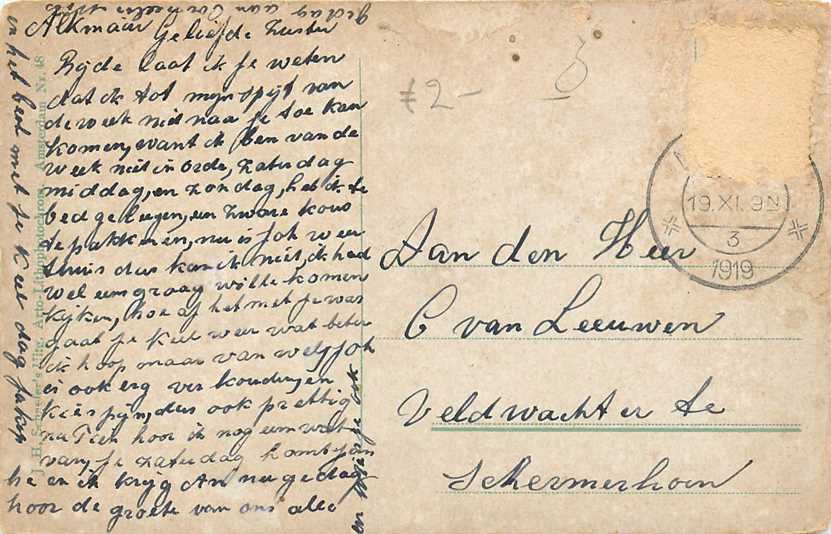 Alkmaar Geliefde Zuster
Bijde laat ik je weten
dat ik tot mijn spijt van
de week niet naar je toe kan
komen, want ik ben van de
week niet in orde, zaterdag
middag, en zondag, heb ik te
bed gelegen, een zware kou
te pakken en, nu is Joh weer
thuis dus kan ik niet, ik had
wel eens graag wille komen
kijken, hoe of het met je was
gaat je keel weer wat beter
ik hoop maar van wel, Joh
is ook erg verkouden, en
kiespijn, dus ook prettig
nu Tien hoor ik nog eens wat
van je zaterdag komt Jan
he en ik krijg An nu gedag
hoor de groete van ons alle
en
en het best met je keel dag
gedag aan Cornelis
J. H. Schaefer's Uitg. Arto-Lithophotochrom. Amsterdam Nr. 48
£2-
3
19.XI. 9N
3
1919
Aan den Heer
C van Leeuwen
Veldwachter te
Schermerhorn